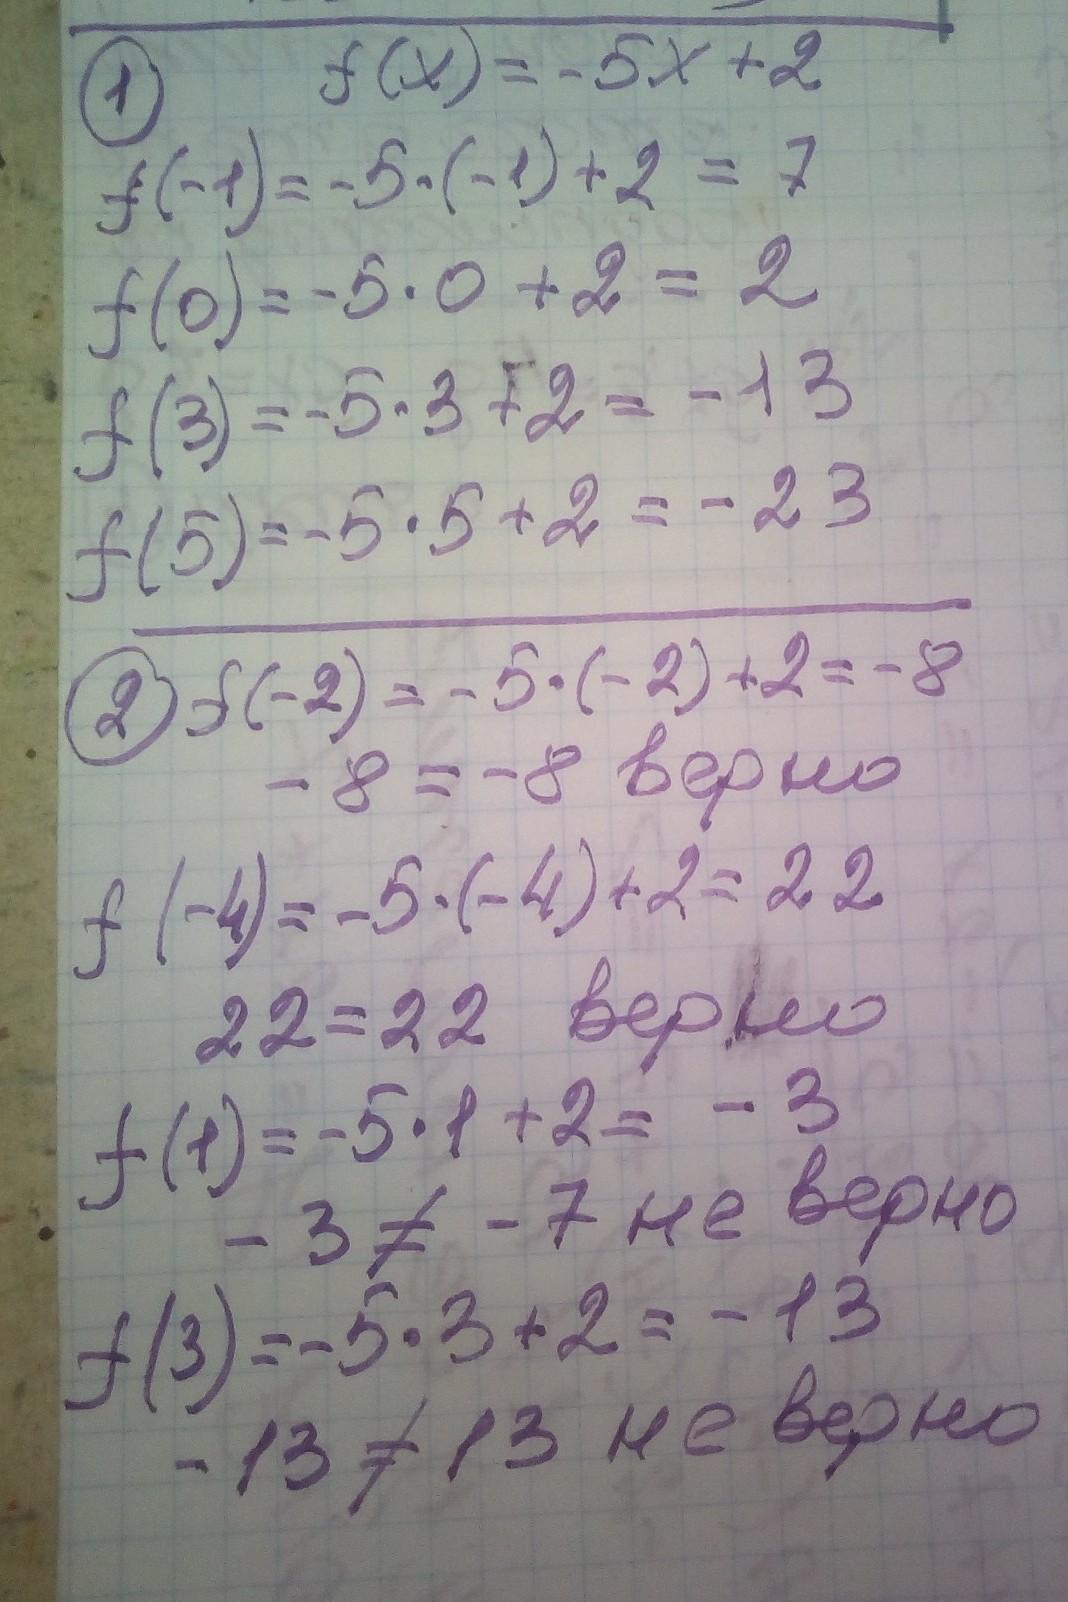 1 f(x) = -5x + 2
f(-1) = -5·(-1) + 2 = 7
f(0) = -5·0 + 2 = 2
f(3) = -5·3 + 2 = -13
f(5) = -5·5 + 2 = -23
2 f(-2) = -5·(-2) + 2 = -8
-8 = -8 верно
f(-4) = -5·(-4) + 2 = 22
22 = 22 верно
f(1) = -5·1 + 2 = -3
-3 ≠ -7 не верно
f(3) = -5·3 + 2 = -13
-13 ≠ 13 не верно